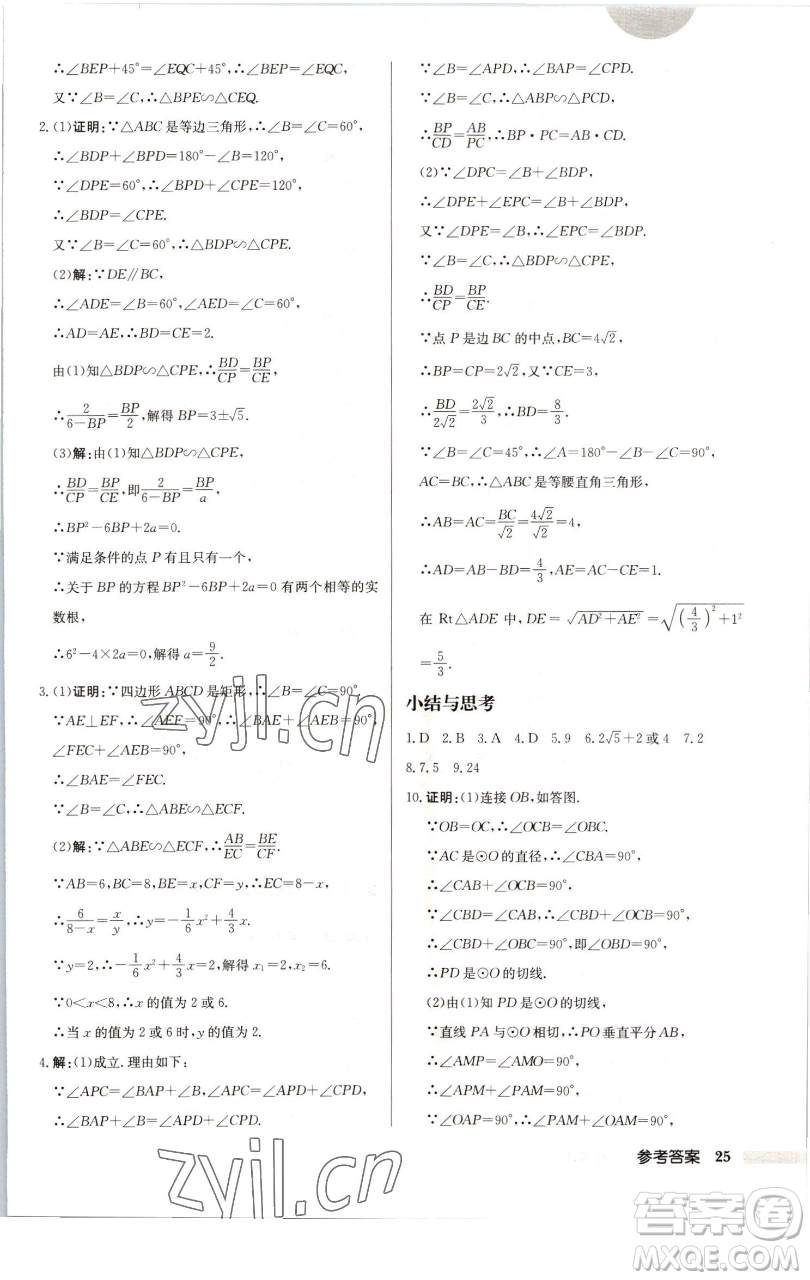 ∴∠BEP+45°=∠EQC+45°,∴∠BEP=∠EQC,
又∵∠B=∠C,∴△BPE∽△CEQ.
2.(1)证明:∵△ABC是等边三角形,∴∠B=∠C=60°,
∴∠BDP+∠BPD=180°-∠B=120°,
∵∠DPE=60°,∴∠BPD+∠CPE=120°,
∴∠BDP=∠CPE.
又∵∠B=∠C=60°,∴△BDP∽△CPE.
(2)解:∵DE∥BC,
∴∠ADE=∠B=60°,∠AED=∠C=60°,
∴AD=AE,∴BD=CE=2.
由(1)知△BDP∽△CPE,∴BD/CP=BP/CE,
∴2/(6-BP)=BP/2,解得BP=3±√5.
(3)解:由(1)知△BDP∽△CPE,
∴BD/CP=BP/CE,即2/(6-BP)=BP/a,
∴BP²-6BP+2a=0.
∵满足条件的点P有且只有一个,
∴关于BP的方程BP²-6BP+2a=0有两个相等的实
数根,
∴6²-4×2a=0,解得a=9/2.
3.(1)证明:∵四边形ABCD是矩形,∴∠B=∠C=90°,
∵AE⊥EF,∴∠AEF=90°,∴∠BAE+∠AEB=90°,
∠FEC+∠AEB=90°,
∴∠BAE=∠FEC.
∵∠B=∠C,∴△ABE∽△ECF.
(2)解:∵△ABE∽△ECF,∴AB/EC=BE/CF.
∵AB=6,BC=8,BE=x,CF=y,∴EC=8-x,
∴6/(8-x)=x/y,∴y=-1/6x²+4/3x.
∵y=2,∴-1/6x²+4/3x=2,解得x₁=2,x₂=6.
∵0<x<8,∴x的值为2或6.
∴当x的值为2或6时,y的值为2.
4.解:(1)成立.理由如下:
∵∠APC=∠BAP+∠B,∠APC=∠APD+∠CPD,
∴∠BAP+∠B=∠APD+∠CPD.
∵∠B=∠APD,∴∠BAP=∠CPD.
∵∠B=∠C,∴△ABP∽△PCD,
∴BP/CD=AB/PC,∴BP·PC=AB·CD.
(2)∵∠DPC=∠B+∠BDP,
∴∠DPE+∠EPC=∠B+∠BDP,
∵∠DPE=∠B,∴∠EPC=∠BDP.
∵∠B=∠C,∴△BDP∽△CPE,
∴BD/CP=BP/CE.
∵点P是边BC的中点,BC=4√2,
∴BP=CP=2√2,又∵CE=3,
∴BD/2√2=2√2/3,∴BD=8/3.
∵∠B=∠C=45°,∴∠A=180°-∠B-∠C=90°,
AC=BC,∴△ABC是等腰直角三角形,
∴AB=AC=BC/√2=4√2/√2=4,
∴AD=AB-BD=4/3,AE=AC-CE=1.
在Rt△ADE中,DE=√(AD²+AE²)=√((4/3)²+1²)
=5/3.
小结与思考
1.D 2.B 3.A 4.D 5.9 6.2√5+2或4 7.2
8.7.5 9.24
10.证明:(1)连接OB,如答图.
∵OB=OC,∴∠OCB=∠OBC.
∵AC是⊙O的直径,∴∠CBA=90°,
∴∠CAB+∠OCB=90°,
∵∠CBD=∠CAB,∴∠CBD+∠OCB=90°,
∴∠CBD+∠OBC=90°,即∠OBD=90°,
∴PD是⊙O的切线.
(2)由(1)知PD是⊙O的切线,
∵直线PA与⊙O相切,∴PO垂直平分AB,
∴∠AMP=∠AMO=90°,
∴∠APM+∠PAM=90°,
∵∠OAP=90°,∴∠PAM+∠OAM=90°,
参考答案 25
zyjl.cn
zyjl.cn
答案圈
MXQE.COM